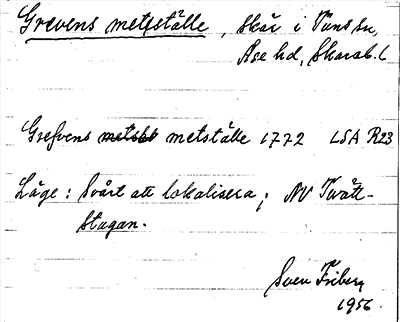 Grevens metställe, skär i Tuns sn,
Åse hd, Skarab. l
Grefvens metställe 1772 LSA R23
Läge: Svårt att lokalisera; NV Tvätt-
stugan.
Sven Friberg
1956.